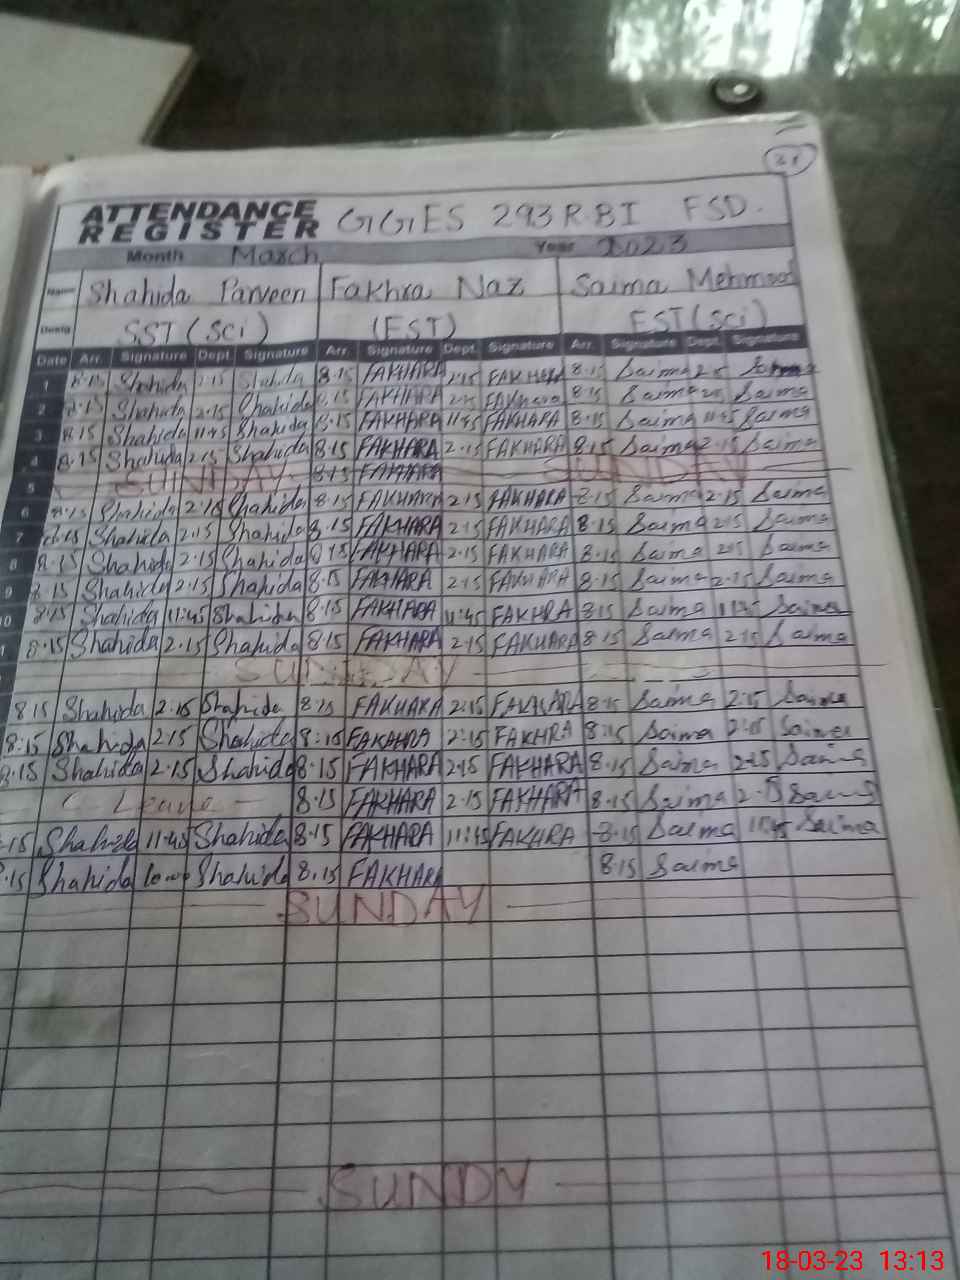 31
ATTENDANCE REGISTER GGES 293 R.B I FSD.
Month March Year 2023
Name Shahida Parveen Fakhra Naz Saima Mehmood
Desig SST (Sci) (EST) EST (Sci)
Date Arr. Signature Dept. Signature Arr. Signature Dept. Signature Arr. Signature Dept. Signature
1 8.15 Shahida 2.15 Shahida 8.15 FAKHARA 2.15 FAKHARA 8.15 Saima 2.15
2 8.15 Shahida 2.15 Shahida 8.15 FAKHARA 2.15 FAKHARA 8.15 Saima 2.15 Saima
3 8.15 Shahida 11:45 Shahida 8.15 FAKHARA 11:45 FAKHARA 8.15 Saima 11:45 Saima
4 8.15 Shahida 2.15 Shahida 8.15 FAKHARA 2.15 FAKHARA 8.15 Saima 2.15 Saima
5 SUNDAY 8.15 FAKHARA SUNDAY
6 8.15 Shahida 2.15 Shahida 8.15 FAKHARA 2.15 FAKHARA 8.15 Saima 2.15 Saima
7 8.15 Shahida 2.15 Shahida 8.15 FAKHARA 2.15 FAKHARA 8.15 Saima 2.15 Saima
8 8.15 Shahida 2.15 Shahida 8.15 FAKHARA 2.15 FAKHARA 8.15 Saima 2.15 Saima
9 8.15 Shahida 2.15 Shahida 8.15 FAKHARA 2.15 FAKHARA 8.15 Saima 2.15 Saima
10 8.15 Shahida 11:45 Shahida 8.15 FAKHARA 11:45 FAKHRA 8.15 Saima 11:45 Saima
8.15 Shahida 2.15 Shahida 8.15 FAKHARA 2.15 FAKHARA 8.15 Saima 2.15 Saima
SUNDAY
8.15 Shahida 2:15 Shahida 8.15 FAKHARA 2:15 FAKHARA 8.15 Saima 2:15 Saima
8:15 Shahida 2.15 Shahida 8:15 FAKAHRA 2:15 FAKHRA 8:15 Saima 2:15 Saima
8.15 Shahida 2.15 Shahida 8.15 FAKHARA 2.15 FAKHARA 8.15 Saima 2.15 Saima
Leave 8.15 FAKHARA 2.15 FAKHARA 8.15 Saima 2.15 Saima
.15 Shahida 11:45 Shahida 8.15 FAKHARA 11:45 FAKHRA 8.15 Saima 11:45 Saima
.15 Shahida Shahida 8.15 FAKHARA 8.15 Saima
SUNDAY
SUNDY
18-03-23 13:13